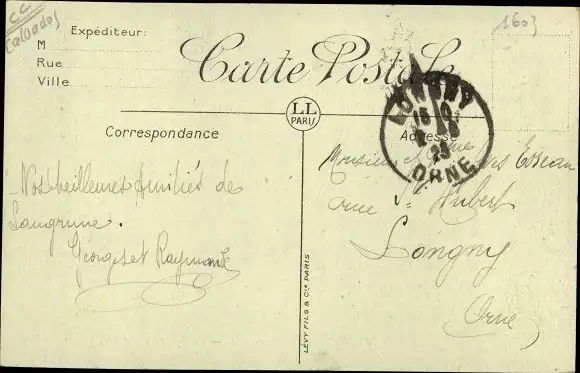 CC
(Calvados)
1603
Expéditeur:
M
Rue
Ville
Carte Postale
LL
PARIS
Correspondance
Adresse
LONGNY
ORNE
25
Nos meilleures Amitiés de
Langrune.
Georges et Raymonde
Monsieur
rue St Hubert
Longny
Orne
LÉVY FILS & Cie PARIS